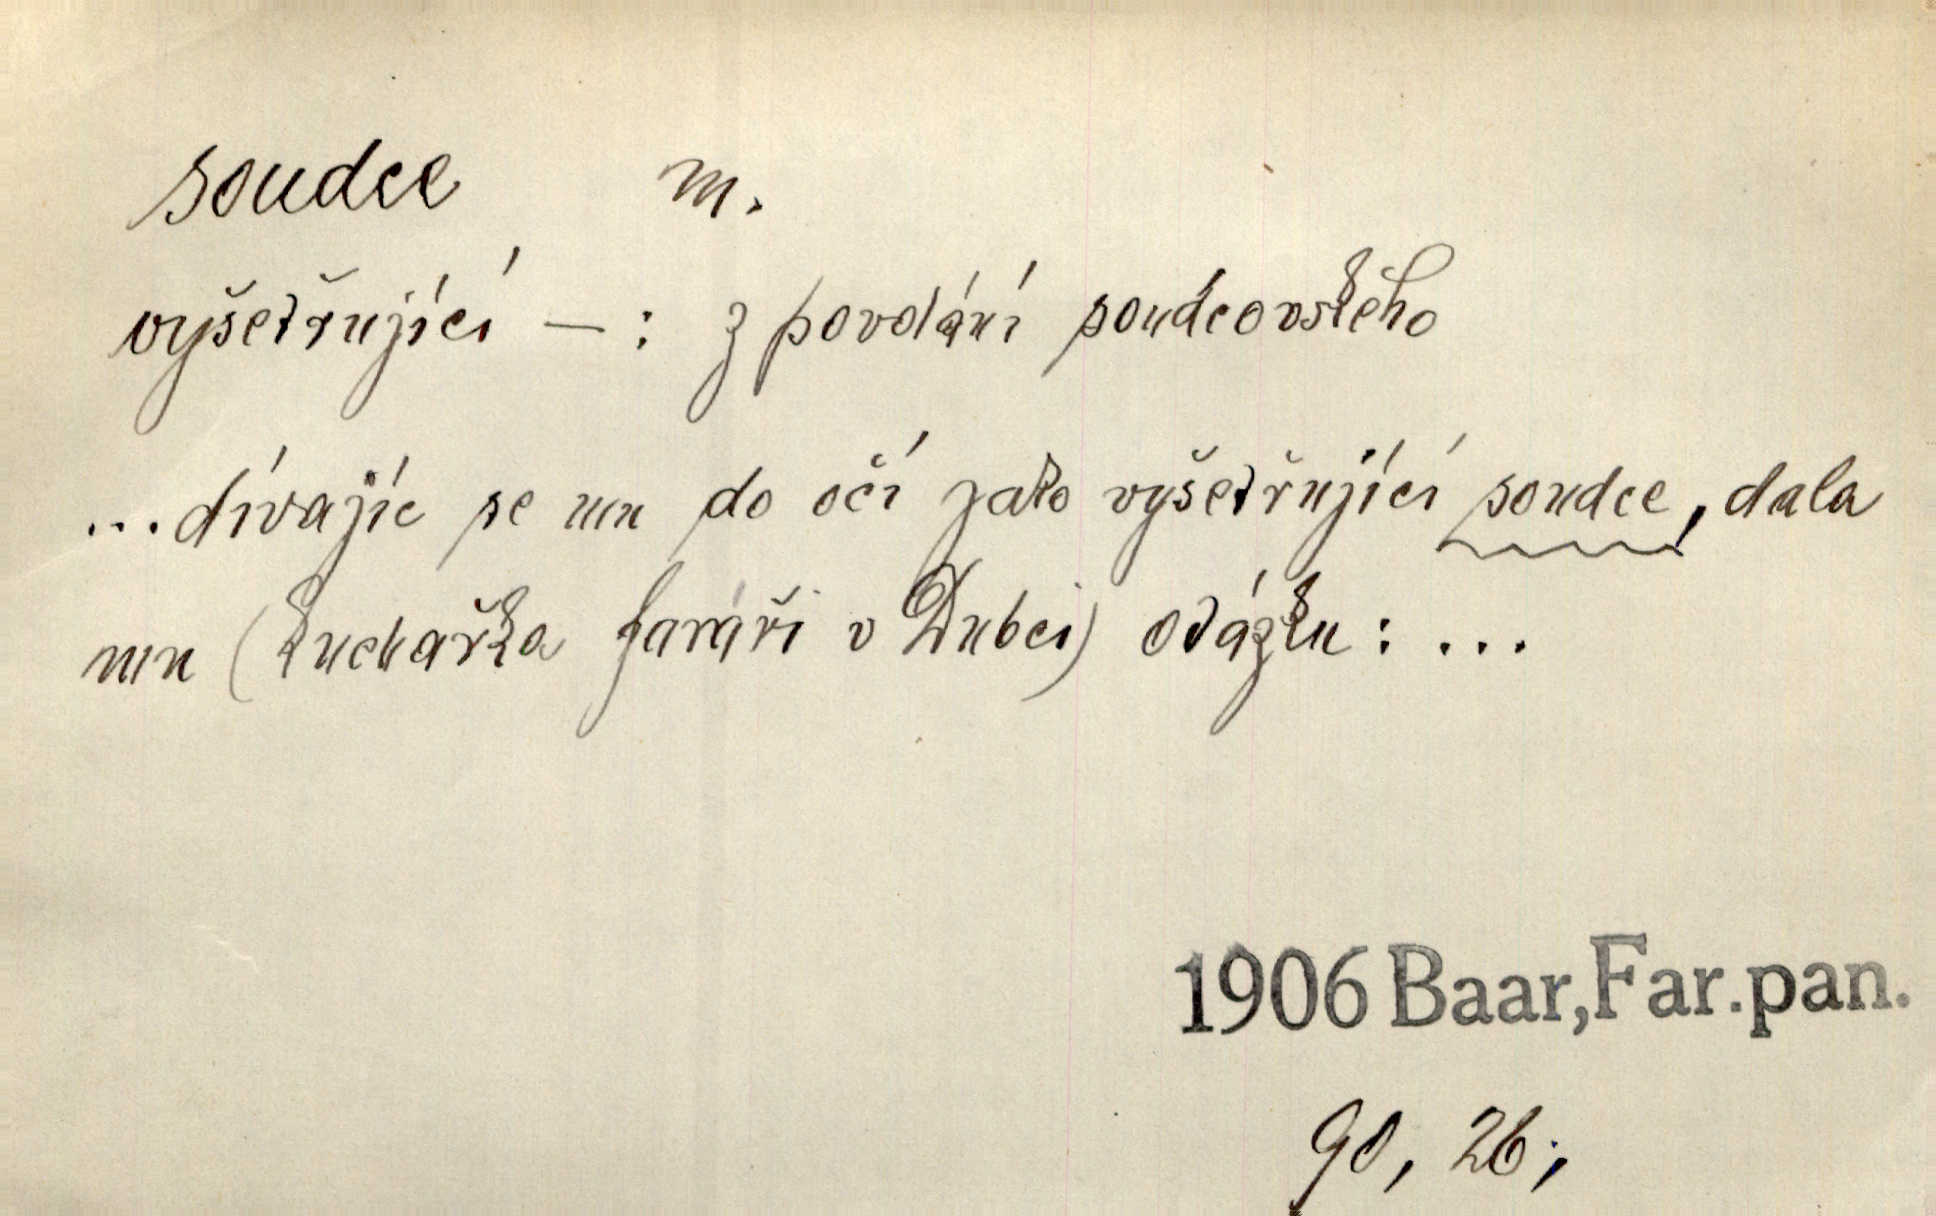 soudce m.
vyšetřující — : z povolání soudcovského
...dívajíc se mu do očí jako vyšetřující soudce, dala
mu (kuchařka faráři v Dubci) otázku : ...
1906 Baar, Far. pan.
90, 26;